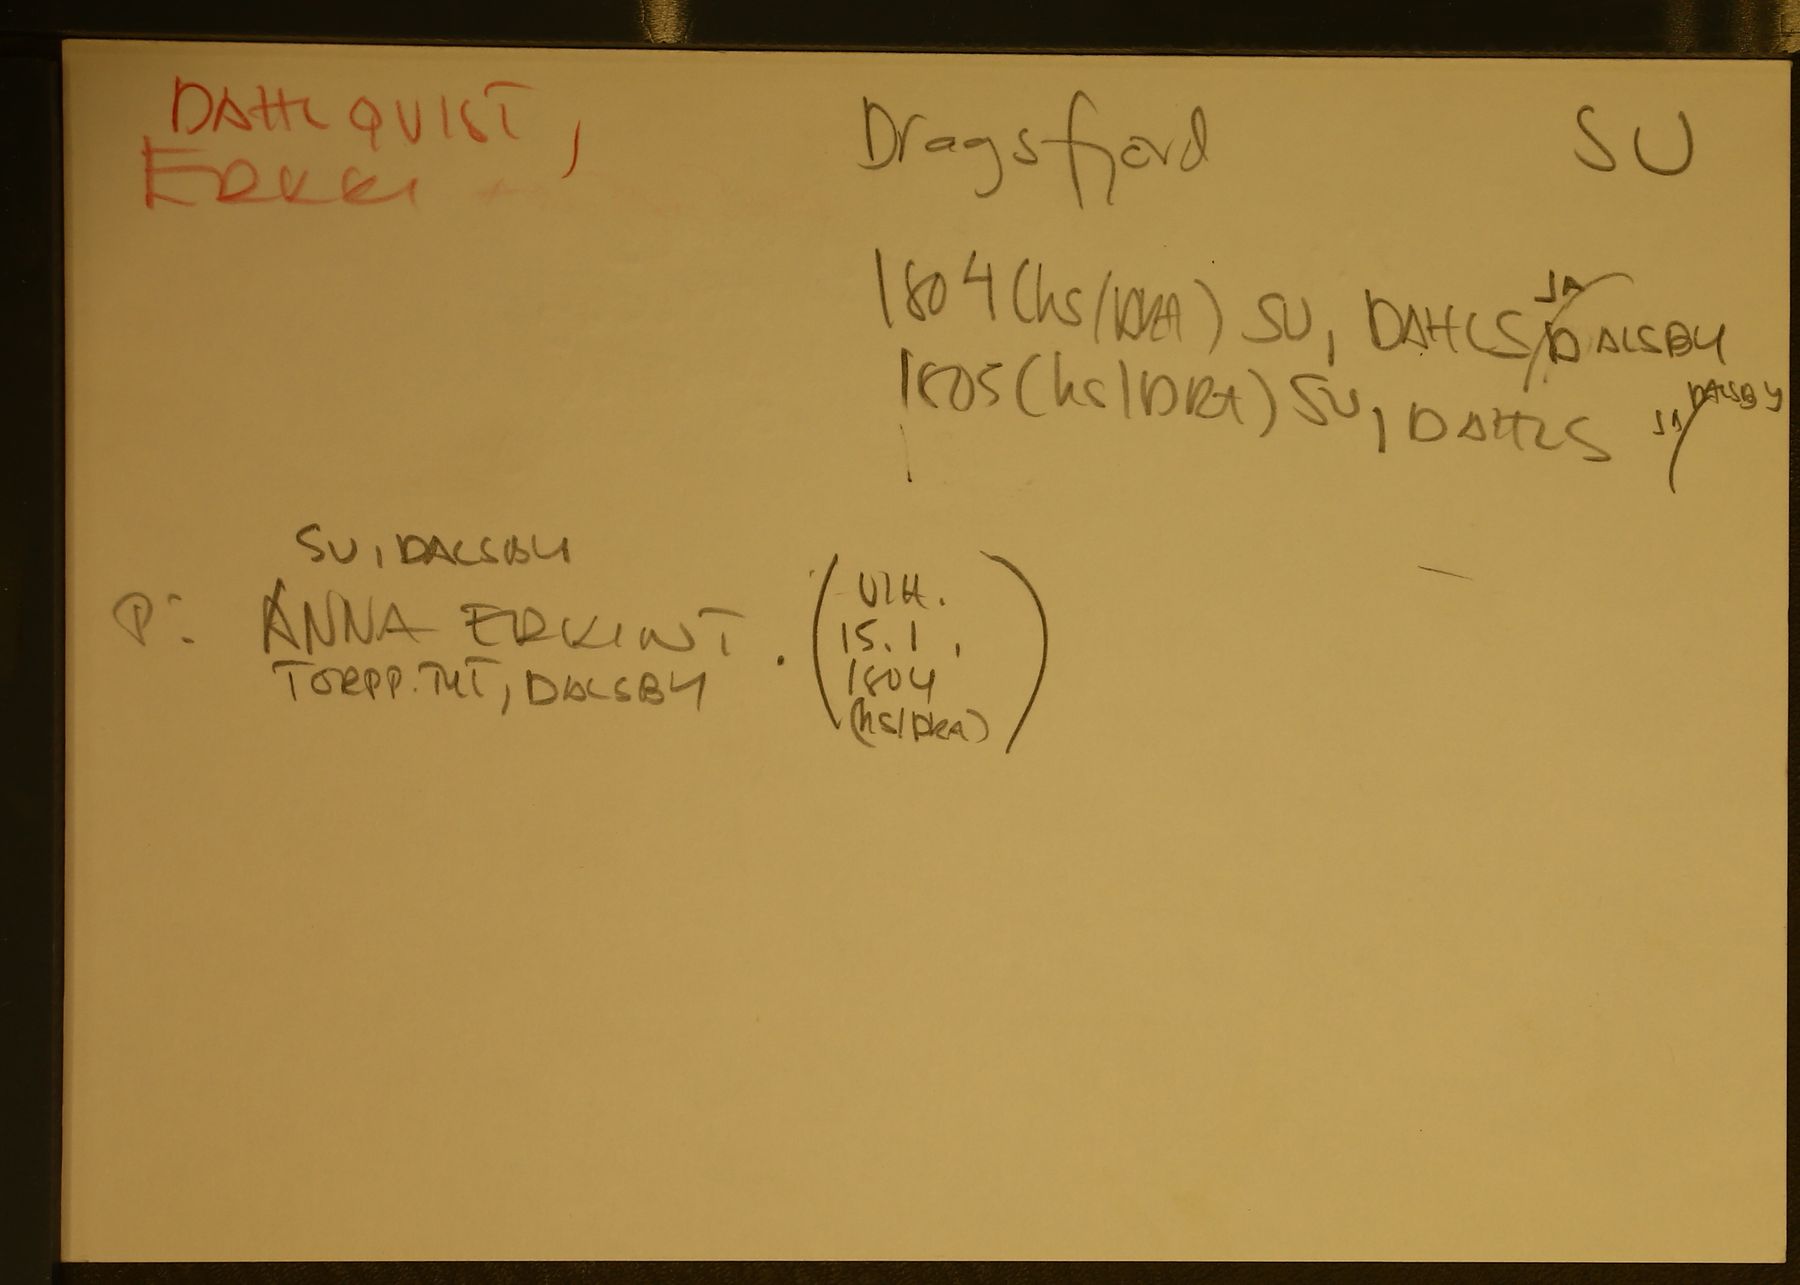 DAHLQVIST,
ERKKI
Dragsfjord
SU
1804 (hs/DRA) SU, DAHLS JA DALSBY
1805 (hs/DRA) SU, DAHLS JA DALSBY
SU, DALSBY
P: ANNA ERKINT.
TORPP. TYT, DALSBY
(VIH.
15.1.
1804
(hs/DRA))